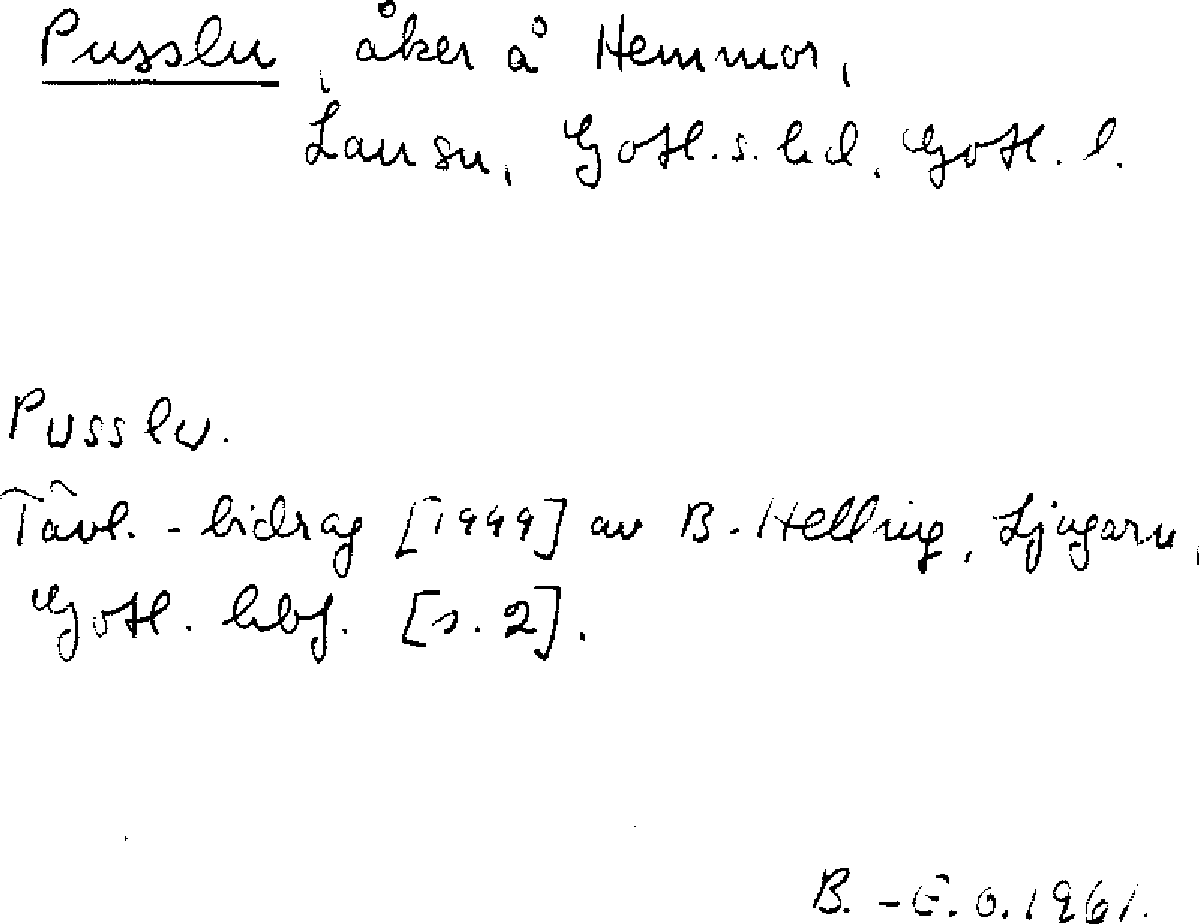 Pusslu, åker å Hemmor,
Lau sn, Gotl. s. hd, Gotl. l.
Pusslu.
Tävl.-bidrag [1949] av B. Hellring, Ljugarn,
Gotl. hbf. [s. 2].
B.-E. O. 1961.